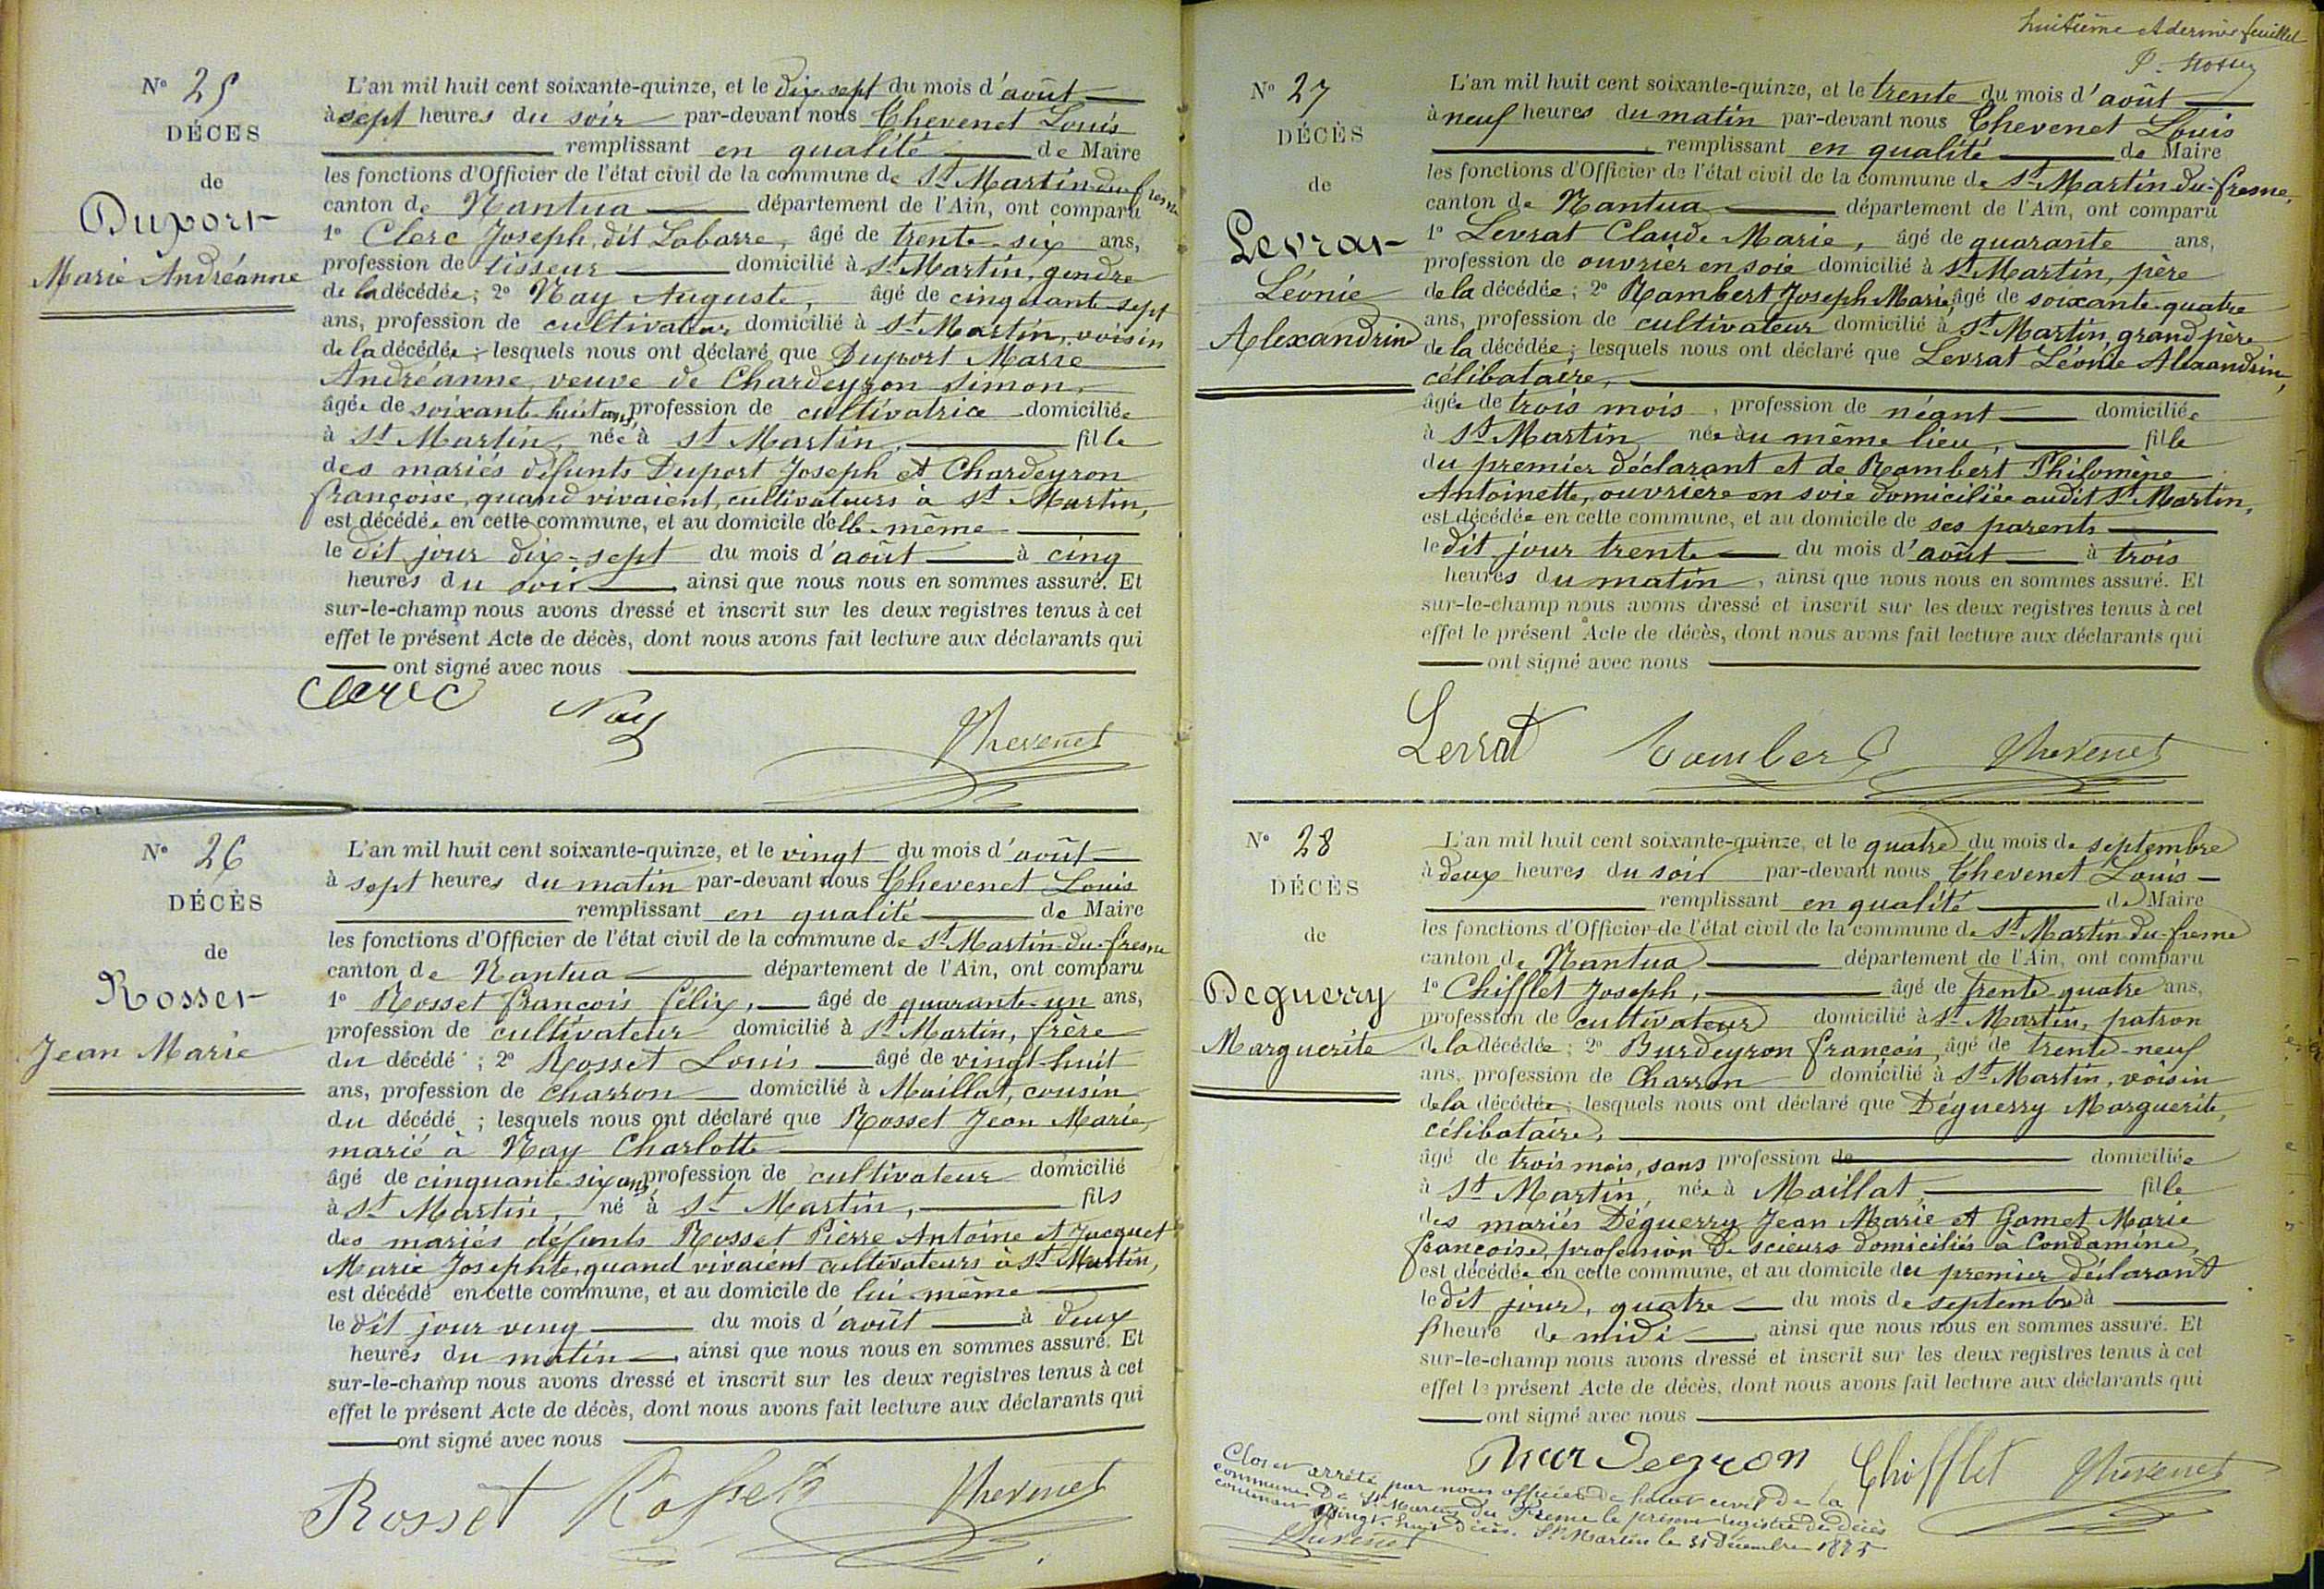 N° 25
DÉCES
de
Duport
Marie Andréanne
L'an mil huit cent soixante-quinze, et le dix-sept du mois d'août
à sept heures du soir par-devant nous Chevenet Louis
remplissant en qualité de Maire
les fonctions d'Officier de l'état civil de la commune de St Martin-du-fresne
canton de Nantua département de l'Ain, ont comparu
1° Clerc Joseph, dit Labarre, âgé de trente-six ans,
profession de tisseur domicilié à St Martin, gendre
de la décédée ; 2° Nay Auguste, âgé de cinquante-sept
ans, profession de cultivateur domicilié à St Martin, voisin
de la décédée ; lesquels nous ont déclaré que Duport Marie
Andréanne, veuve de Chardeyron Simon,
âgée de soixante-huit ans, profession de cultivatrice domiciliée
à St Martin, née à St Martin, fille
des mariés défunts Duport Joseph et Chardeyron
françoise, quand vivaient, cultivateurs à St Martin,
est décédée en cette commune, et au domicile d'elle-même
le dit jour dix-sept du mois d'août à cinq
heures du soir, ainsi que nous nous en sommes assuré. Et
sur-le-champ nous avons dressé et inscrit sur les deux registres tenus à cet
effet le présent Acte de décès, dont nous avons fait lecture aux déclarants qui
ont signé avec nous
Clerc Nay Chevenet
N° 26
DÉCÈS
de
Rosset
Jean Marie
L'an mil huit cent soixante-quinze, et le vingt du mois d'août
à sept heures du matin par-devant nous Chevenet Louis
remplissant en qualité de Maire
les fonctions d'Officier de l'état civil de la commune de St Martin-du-fresne
canton de Nantua département de l'Ain, ont comparu
1° Rosset françois félix, âgé de quarante-un ans,
profession de cultivateur domicilié à St Martin, frère
du décédé ; 2° Rosset Louis âgé de vingt-huit
ans, profession de charron domicilié à Maillat, cousin
du décédé ; lesquels nous ont déclaré que Rosset Jean Marie,
marié à Nay Charlotte
âgé de cinquante-six ans, profession de cultivateur domicilié
à St Martin, né à St Martin, fils
des mariés défunts Rosset Pierre Antoine et Jacquet
Marie Josephte, quand vivaient cultivateurs à St Martin,
est décédé en cette commune, et au domicile de lui-même
le dit jour ving du mois d'août à deux
heures du matin, ainsi que nous nous en sommes assuré. Et
sur-le-champ nous avons dressé et inscrit sur les deux registres tenus à cet
effet le présent Acte de décès, dont nous avons fait lecture aux déclarants qui
ont signé avec nous
Rosset Rosset Chevenet
huitième et dernier feuillet
N° 27
DÉCÈS
de
Levrat
Léonie
Alexandrine
L'an mil huit cent soixante-quinze, et le trente du mois d'août
à neuf heures du matin par-devant nous Chevenet Louis
remplissant en qualité de Maire
les fonctions d'Officier de l'état civil de la commune de St Martin-du-fresne,
canton de Nantua département de l'Ain, ont comparu
1° Levrat Claude Marie, âgé de quarante ans,
profession de ouvrier en soie domicilié à St Martin, père
de la décédée ; 2° Rambert Joseph Marie, âgé de soixante-quatre
ans, profession de cultivateur domicilié à St Martin, grand père
de la décédée ; lesquels nous ont déclaré que Levrat Léonie Alexandrine,
célibataire,
âgée de trois mois, profession de néant domiciliée
à St Martin, née au même lieu, fille
du premier déclarant et de Rambert Philomène
Antoinette, ouvrière en soie domiciliée audit St Martin,
est décédée en cette commune, et au domicile de ses parents
le dit jour trente du mois d'août à trois
heures du matin, ainsi que nous nous en sommes assuré. Et
sur-le-champ nous avons dressé et inscrit sur les deux registres tenus à cet
effet le présent Acte de décès, dont nous avons fait lecture aux déclarants qui
ont signé avec nous
Levrat Rambert Chevenet
N° 28
DÉCÈS
de
Deguerry
Marguerite
L'an mil huit cent soixante-quinze, et le quatre du mois de septembre
à deux heures du soir par-devant nous Chevenet Louis
remplissant en qualité de Maire
les fonctions d'Officier de l'état civil de la commune de St Martin-du-fresne
canton de Nantua département de l'Ain, ont comparu
1° Chifflet Joseph, âgé de trente-quatre ans,
profession de cultivateur domicilié à St Martin, patron
de la décédée ; 2° Burdeyron françois, âgé de trente-neuf
ans, profession de Charron domicilié à St Martin, voisin
de la décédée ; lesquels nous ont déclaré que Déguerry Marguerite,
célibataire,
âgé de trois mois, sans profession de domiciliée
à St Martin, née à Maillat, fille
des mariés Déguerry Jean Marie et Gamet Marie
françoise, profession de scieurs domiciliés à Condamine,
est décédée en cette commune, et au domicile du premier déclarant
le dit jour, quatre du mois de septembre à
l'heure de midi, ainsi que nous nous en sommes assuré. Et
sur-le-champ nous avons dressé et inscrit sur les deux registres tenus à cet
effet le présent Acte de décès, dont nous avons fait lecture aux déclarants qui
ont signé avec nous
Burdeyron Chifflet Chevenet
Clos et arrêté par nous officier de l'état civil de la
commune de St Martin du Fresne le présent registre des décès
contenant vingt-huit décès. St Martin le 31 décembre 1875
Chevenet